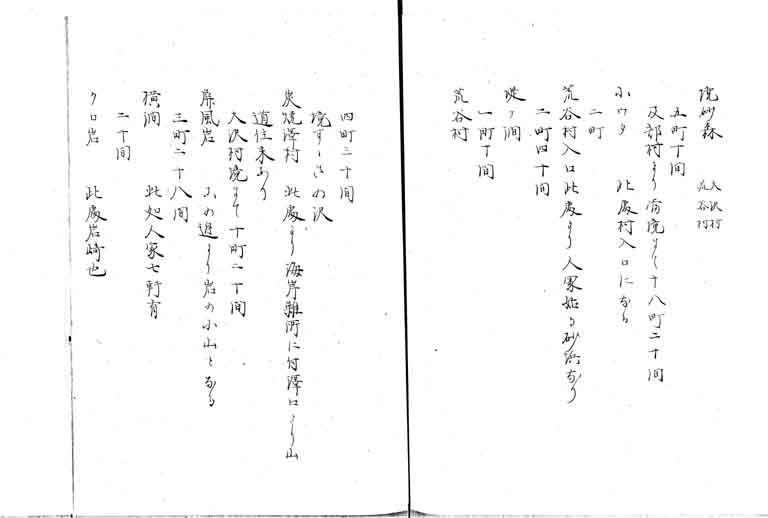 境砂森 大沢村 荒谷村
五町丁間
及部村より當境まて十八町二十間
小ウタ 此處村入口になる
二町
荒谷村入口此處より人家始る砂浜なり
二町四十間
堤ヶ間
一町丁間
荒谷村
四町三十間
境すゝきの沢
炭焼澤村 此處より海岸難所に付澤口より山
道往来あり
大沢村境まて十町二十間
屏風岩 この邊より岩の小山となる
三町二十八間
横澗 此処人家七軒有
二十間
クロ岩 此處岩崎也